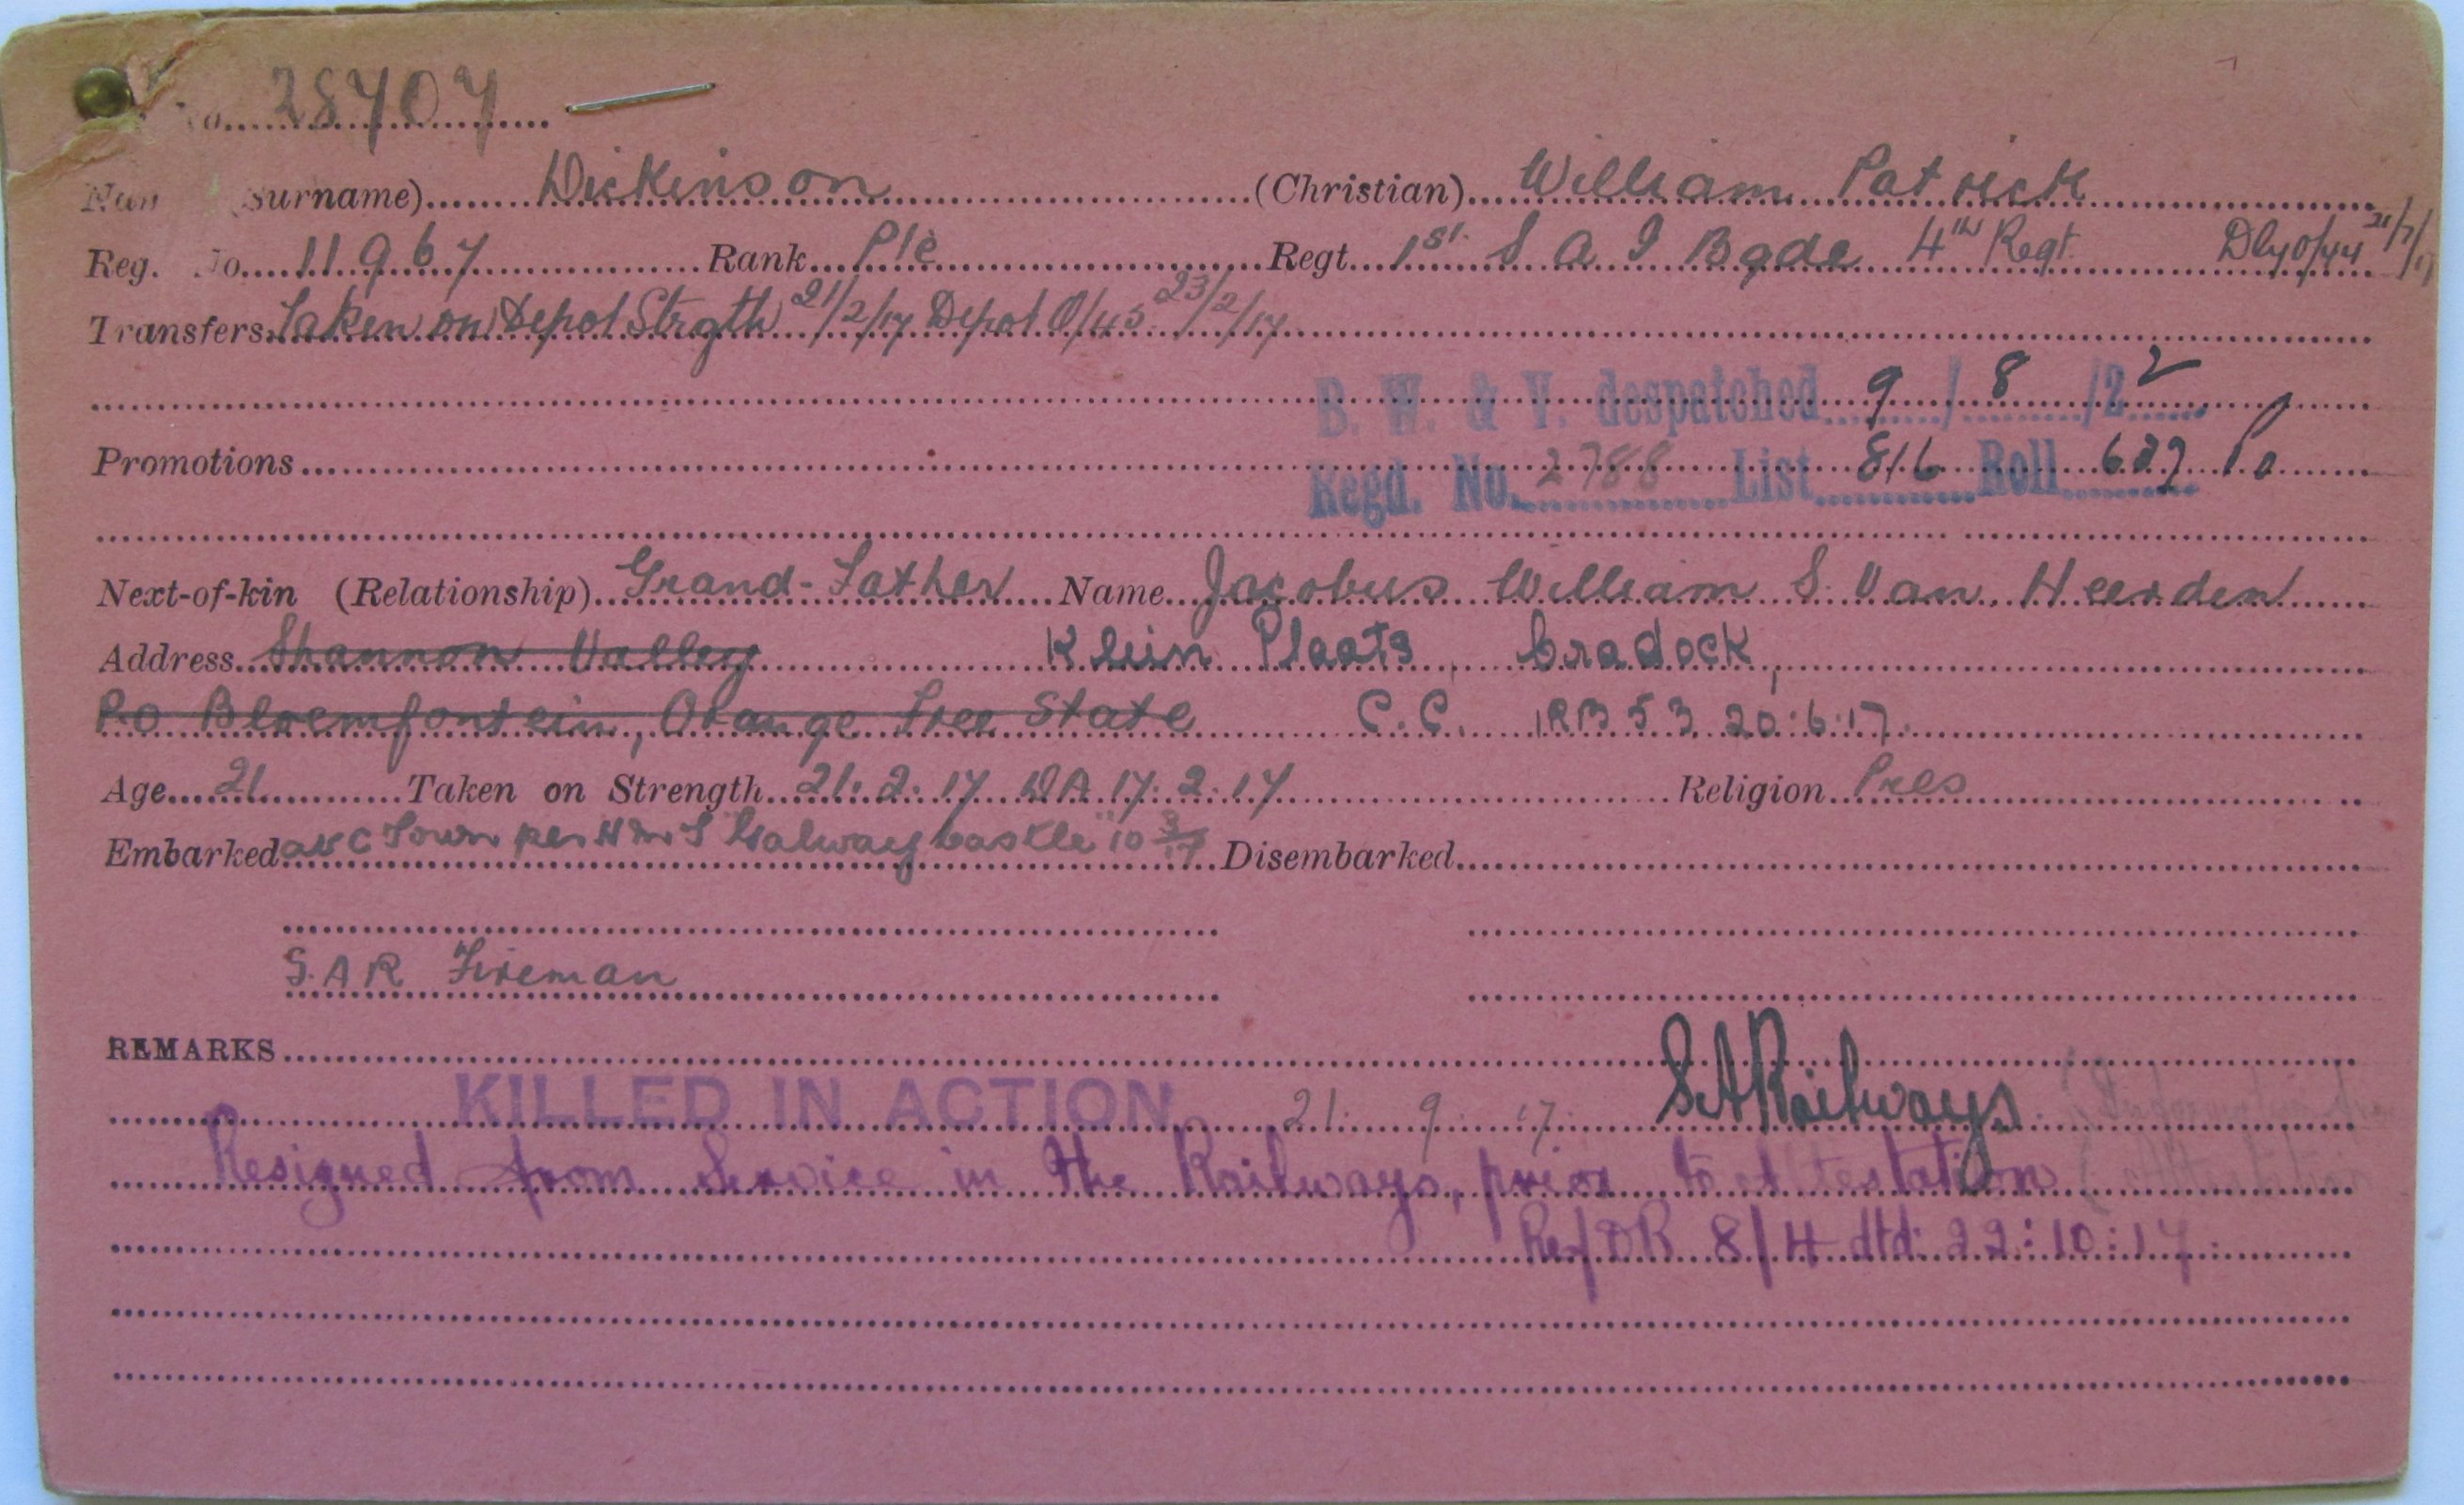 No. 28707
(Surname) Dickinson (Christian) William Patrick
Reg. No. 11967 Rank Pte Regt. 1st S A I Bgde 4th Regt. Dly O/44 21/7/17
Transfers Taken on Depot Strgth 21/2/17 Depot O/45 23/2/17
B. W. & V. despatched 9/8/22
Promotions
Regd. No. 2788 List 816 Roll 639
Next-of-kin (Relationship) Grand-Father Name Jacobus William S. Van Heerden
Address Shannon Valley Klein Plaats, Cradock,
P.O Bloemfontein, Orange Free State C.C. IRB 53 20:6:17.
Age 21 Taken on Strength 21.2.17 DA 17.2.17 Religion Pres
Embarked at C Town per HMS "Galway Castle" 10 3/17 Disembarked
S.A.R Fireman
REMARKS
KILLED IN ACTION 21. 9. 17. S.A Railways
Resigned from Service in the Railways, prior to Attestation
Ref DR 8/4 dtd. 22:10:17.